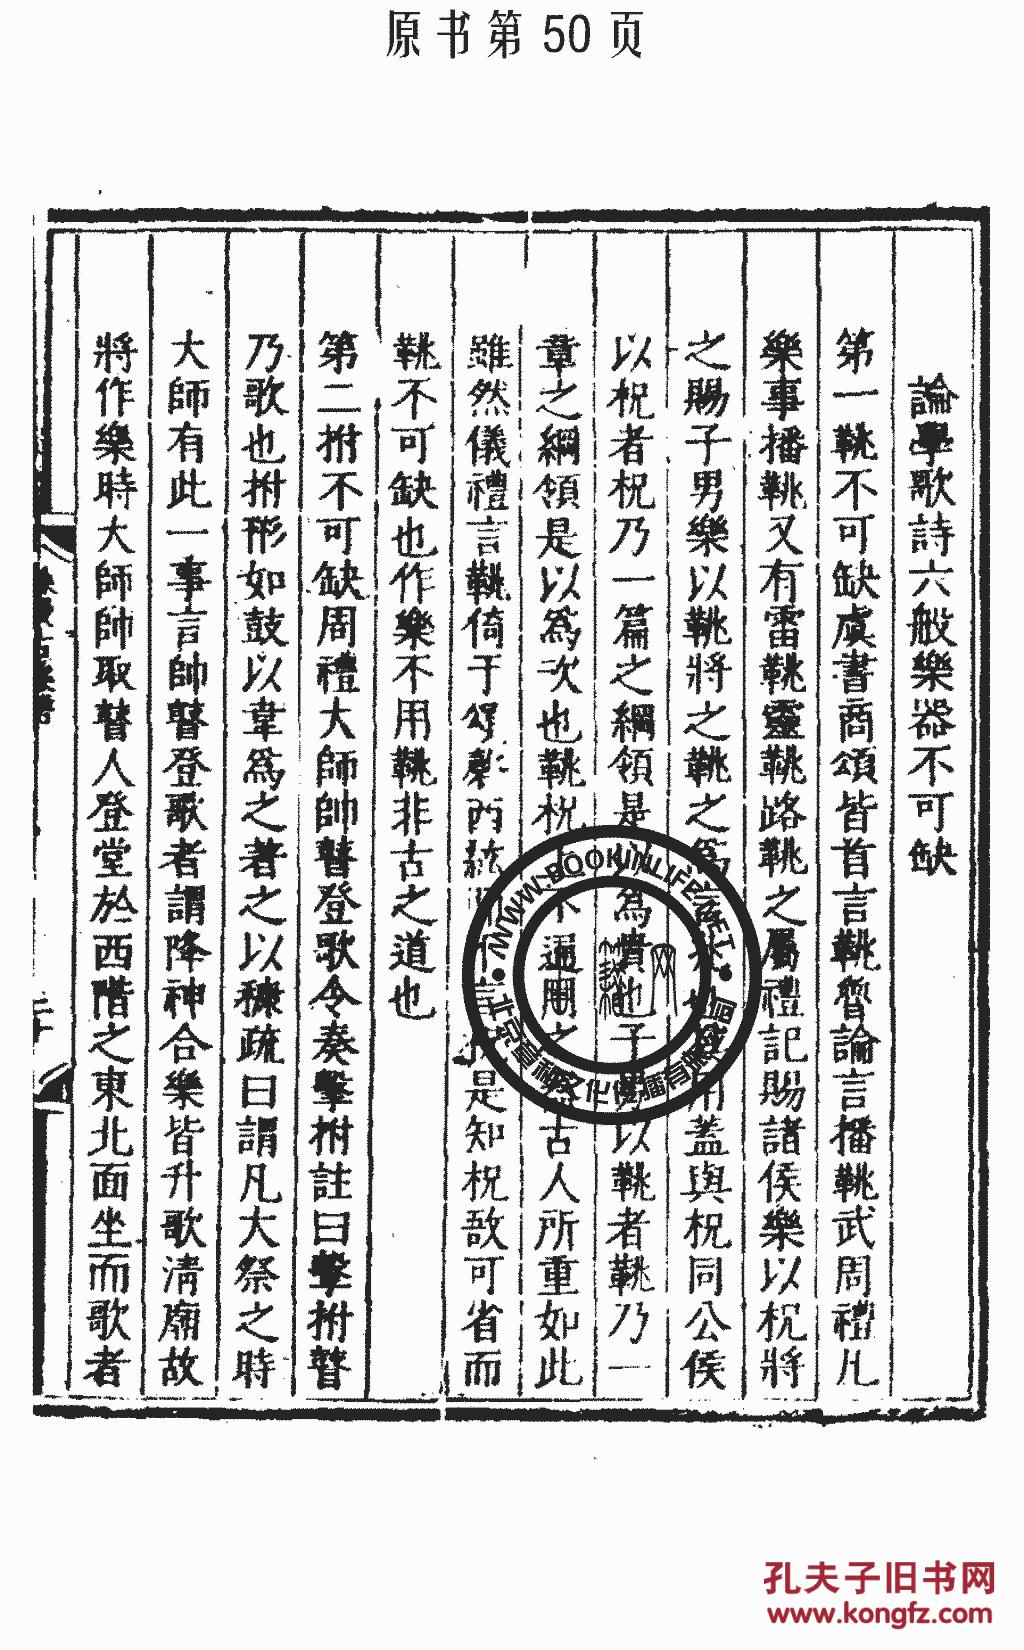 原书第50页
論學歌詩六般樂器不可缺
第一鞉不可缺虞書商頌皆首言鞉齊論言播鞉武周禮凡
樂事播鞉又有雷鞉靈鞉路鞉之屬禮記賜諸侯樂以柷將
之賜子男樂以鞉將之鞉之為言兆也與用蓋與柷同公侯
以柷者柷乃一篇之綱領是以為也子男以鞉者鞉乃一
章之綱領是以為次也鞉柷古人所重如此
雖然儀禮言鞉倚于頌磬西紘言是知柷敔可省而
鞉不可缺也作樂不用鞉非古之道也
第二拊不可缺周禮大師帥瞽登歌令奏擊拊註曰擊拊瞽
乃歌也拊形如鼓以韋為之著之以穅疏曰謂凡大祭之時
大師有此一事言帥瞽登歌者謂降神合樂皆升歌清廟故
將作樂時大師帥取瞽人登堂於西階之東北面坐而歌者
WWW.BOOKUNLIF
孔夫子旧书网
www.kongfz.com